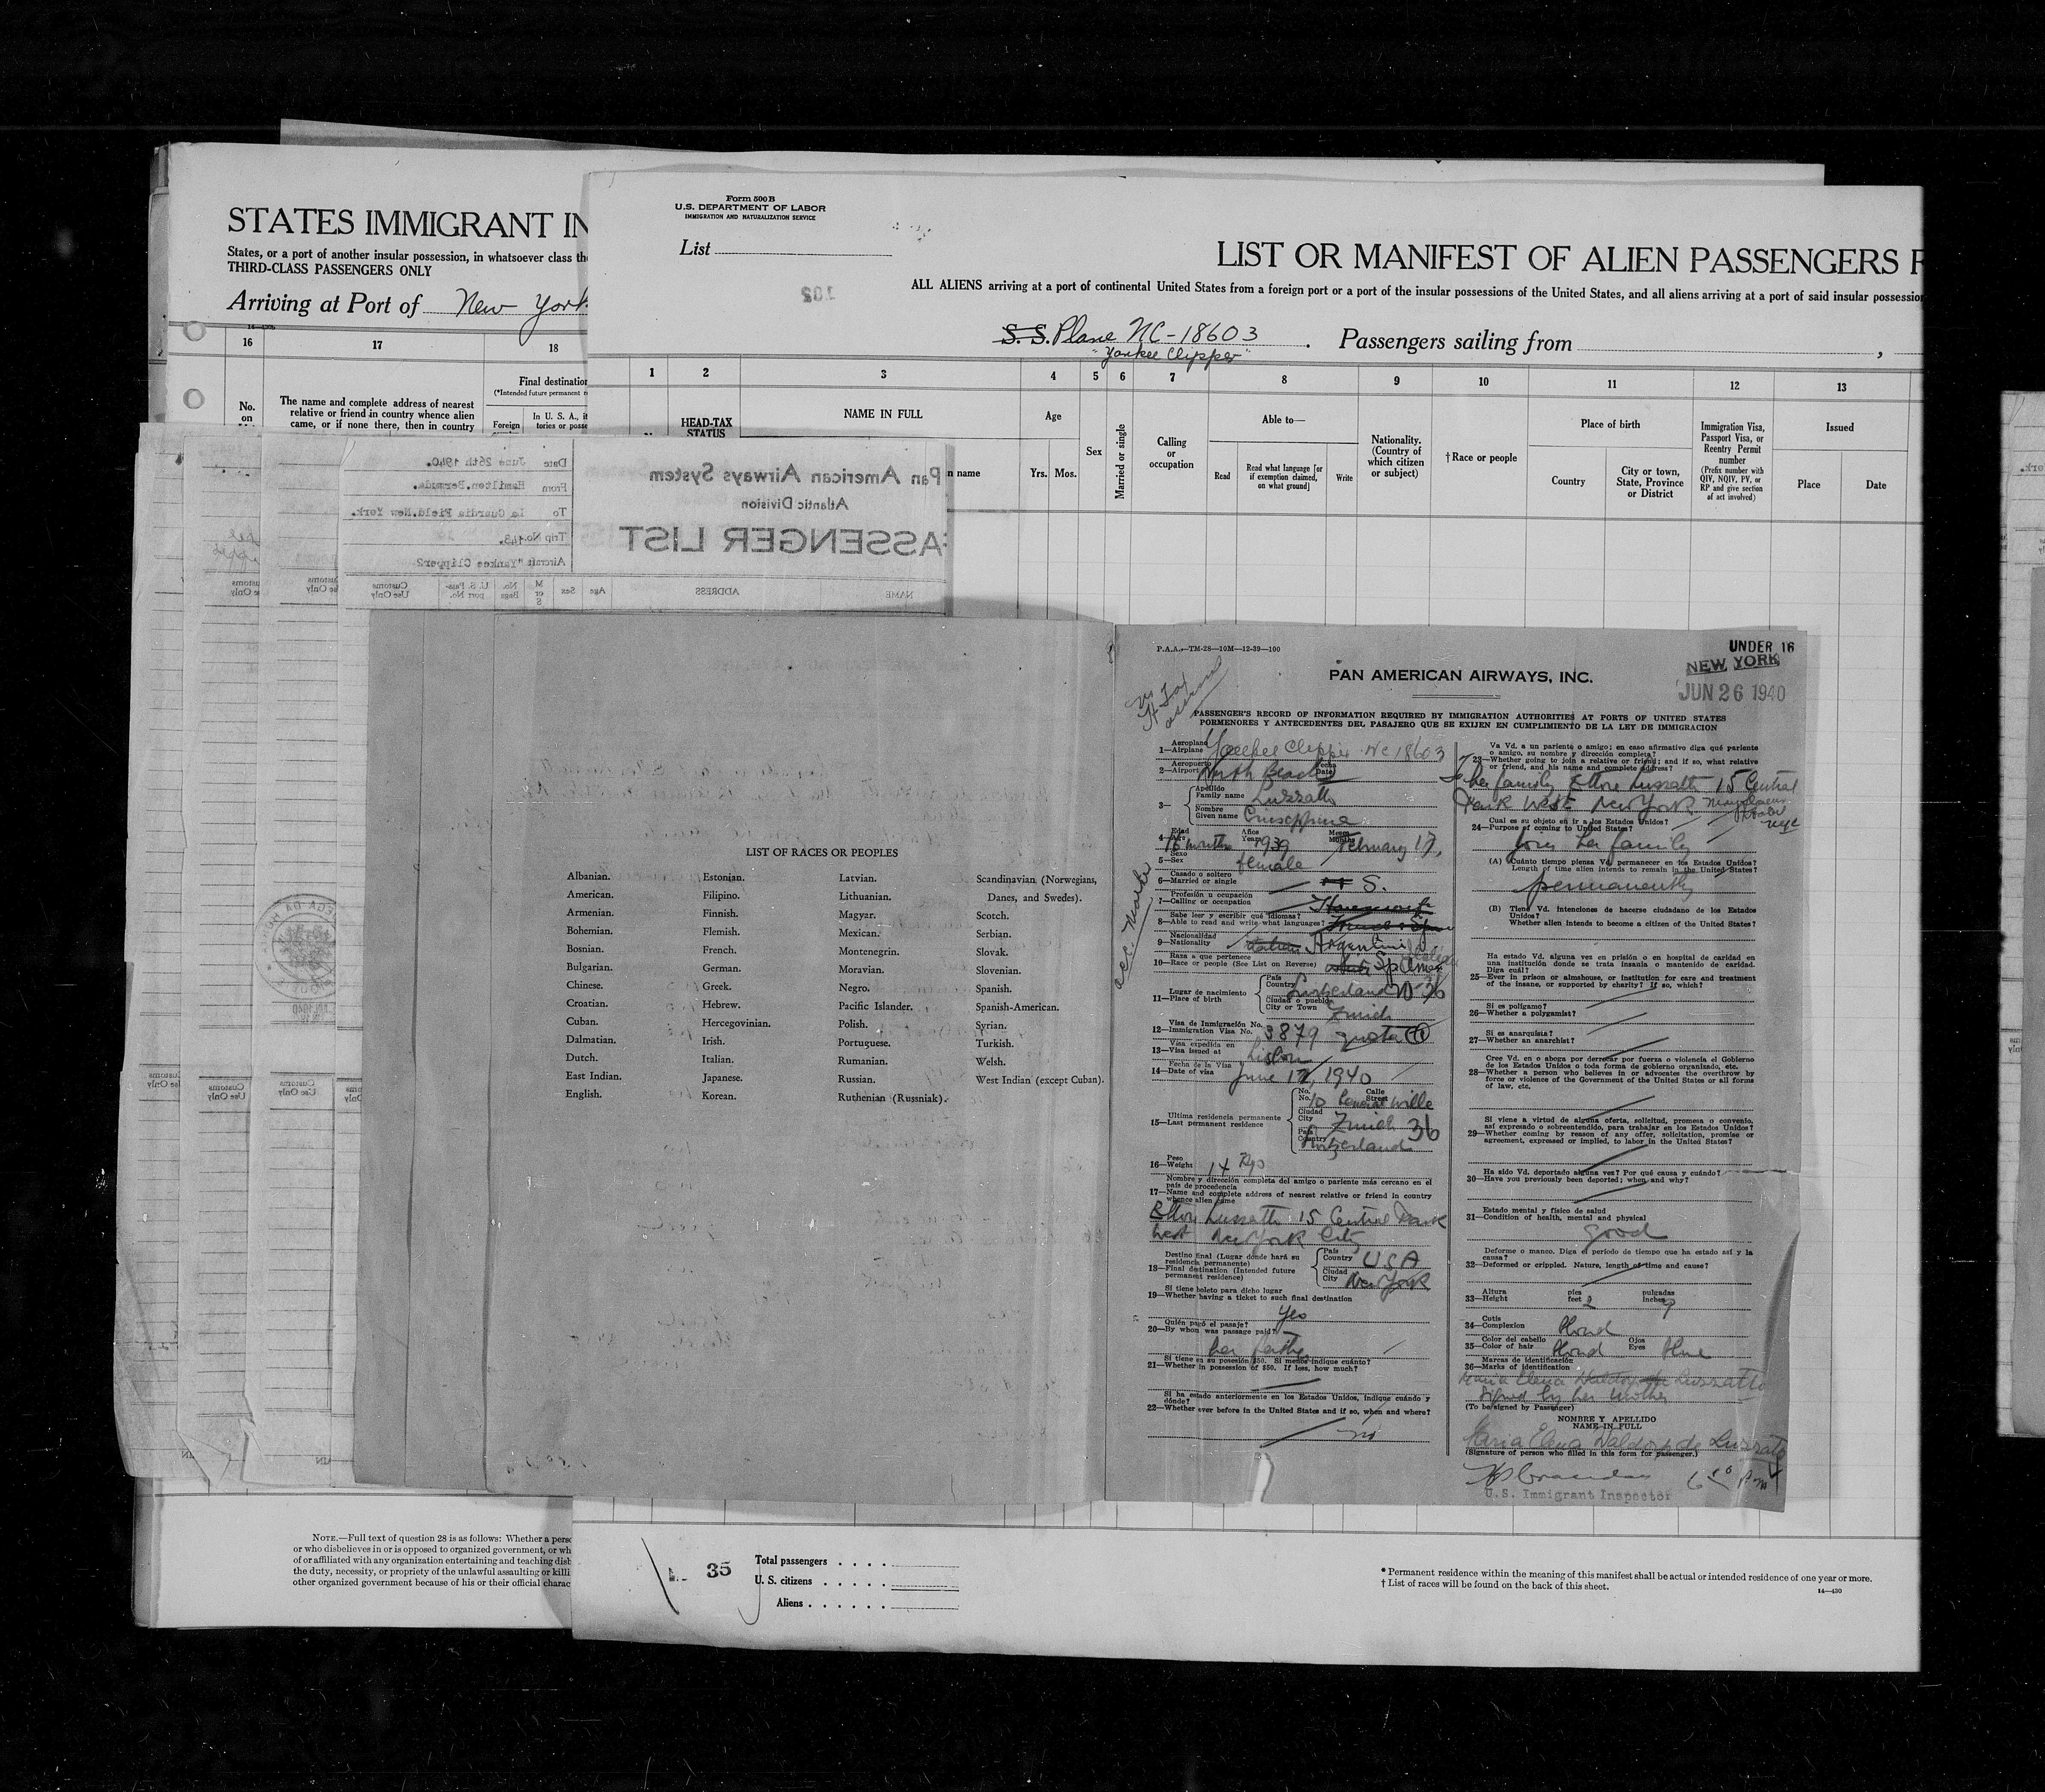 STATES IMMIGRANT IN
States, or a port of another insular possession, in whatsoever class the
THIRD-CLASS PASSENGERS ONLY
Arriving at Port of New York
16 17 18
No. on
The name and complete address of nearest
relative or friend in country whence alien
came, or if none there, then in country
Final destination
(*Intended future permanent
Foreign
In U. S. A., it
tories or posse
Form 500 B
U.S. DEPARTMENT OF LABOR
IMMIGRATION AND NATURALIZATION SERVICE
List
102
LIST OR MANIFEST OF ALIEN PASSENGERS F
ALL ALIENS arriving at a port of continental United States from a foreign port or a port of the insular possessions of the United States, and all aliens arriving at a port of said insular possession
S. S. Plane NC-18603 . Passengers sailing from ,
"Yankee Clipper"
1 2 3 4 5 6 7 8 9 10 11 12 13
HEAD-TAX
STATUS
NAME IN FULL
n name
Age
Yrs. Mos.
Sex
Married or single
Calling
or
occupation
Able to—
Read
Read what language [or
if exemption claimed,
on what ground]
Write
Nationality.
(Country of
which citizen
or subject)
†Race or people
Place of birth
Country
City or town,
State, Province
or District
Immigration Visa,
Passport Visa, or
Reentry Permit
number
(Prefix number with
QIV, NQIV, PV, or
RP and give section
of act involved)
Issued
Place
Date
Pan American Airways System
Atlantic Division
PASSENGER LIST
Date June 26th 1940.
From Hamilton.Bermuda.
To La Guardia Field.New York.
Trip No.143.
Aircraft "Yankee Clipper2
NAME ADDRESS Age Sex M or S No. Bags U.S. Pass-port No. Customs Use Only
LIST OF RACES OR PEOPLES
Albanian.
American.
Armenian.
Bohemian.
Bosnian.
Bulgarian.
Chinese.
Croatian.
Cuban.
Dalmatian.
Dutch.
East Indian.
English.
Estonian.
Filipino.
Finnish.
Flemish.
French.
German.
Greek.
Hebrew.
Hercegovinian.
Irish.
Italian.
Japanese.
Korean.
Latvian.
Lithuanian.
Magyar.
Mexican.
Montenegrin.
Moravian.
Negro.
Pacific Islander.
Polish.
Portuguese.
Rumanian.
Russian.
Ruthenian (Russniak).
Scandinavian (Norwegians,
Danes, and Swedes).
Scotch.
Serbian.
Slovak.
Slovenian.
Spanish.
Spanish-American.
Syrian.
Turkish.
Welsh.
West Indian (except Cuban).
P.A.A.—TM-28—10M—12-39—100
UNDER 16
NEW YORK
JUN 26 1940
PAN AMERICAN AIRWAYS, INC.
PASSENGER'S RECORD OF INFORMATION REQUIRED BY IMMIGRATION AUTHORITIES AT PORTS OF UNITED STATES
PORMENORES Y ANTECEDENTES DEL PASAJERO QUE SE EXIJEN EN CUMPLIMIENTO DE LA LEY DE IMMIGRACION
Aeroplano
1—Airplane Yankee Clipper NC 18603
Aeropuerto Fecha
2—Airport North Beach Date
Apellido
3— Family name Luzzatto
Nombre
Given name Giuseppina
Edad Años Meses
4—Age 16 months Years 1939 Months February 17,
Sexo
5—Sex female
Casado o soltero
6—Married or single S.
Profesión u ocupación
7—Calling or occupation
Sabe leer y escribir qué idiomas?
8—Able to read and write what languages?
Nacionalidad
9—Nationality Italian Argentine
Raza a que pertenece
10—Race or people (See List on Reverse) Sp Amer
Lugar de nacimiento País
11—Place of birth Country Switzerland
Ciudad o pueblo
City or Town Zurich
Visa de Inmigración No.
12—Immigration Visa No. 3879 quota
Visa expedida en
13—Visa issued at Lisbon
Fecha de la Visa
14—Date of visa June 12, 1940
No. Calle
No. 10 Street General Wille
Ultima residencia permanente Ciudad
15—Last permanent residence City Zurich 36
País
Country Switzerland
Peso
16—Weight 14 Kgs
Nombre y dirección completa del amigo o pariente más cercano en el
país de procedencia
17—Name and complete address of nearest relative or friend in country
whence alien came
Ettore Luzzatto 15 Central Park
West New York City
Destino final (Lugar donde hará su
residencia permanente)
18—Final destination (Intended future
permanent residence)
País
Country USA
Ciudad
City New York
Si tiene boleto para dicho lugar
19—Whether having a ticket to such final destination
Yes
Quién pagó el pasaje?
20—By whom was passage paid?
her father
Si tiene en su posesión $50. Si menos indique cuánto?
21—Whether in possession of $50. If less, how much?
Si ha estado anteriormente en los Estados Unidos, indique cuándo y
dónde?
22—Whether ever before in the United States and if so, when and where?
no
Va Vd. a un pariente o amigo; en caso afirmativo diga qué pariente
o amigo, su nombre y dirección completa?
23—Whether going to join a relative or friend; and if so, what relative
or friend, and his name and complete address?
To her family Ettore Luzzatto 15 Central
Park West New York
Cual es su objeto en ir a los Estados Unidos?
24—Purpose of coming to United States?
join her family
(A) Cuánto tiempo piensa Vd. permanecer en los Estados Unidos?
Length of time alien intends to remain in the United States?
permanently
(B) Tiene Vd. intenciones de hacerse ciudadano de los Estados
Unidos?
Whether alien intends to become a citizen of the United States?
Ha estado Vd. alguna vez en prisión o en hospital de caridad en
una institución donde se trata insania o mantenido de caridad.
Diga cuál?
25—Ever in prison or almshouse, or institution for care and treatment
of the insane, or supported by charity? If so, which?
Si es polígamo?
26—Whether a polygamist?
Si es anarquista?
27—Whether an anarchist?
Cree Vd. en o aboga por derrocar por fuerza o violencia el Gobierno
de los Estados Unidos o toda forma de gobierno organizado, etc.
28—Whether a person who believes in or advocates the overthrow by
force or violence of the Government of the United States or all forms
of law, etc.
Si viene a virtud de alguna oferta, solicitud, promesa o convenio,
así expresado o sobreentendido, para trabajar en los Estados Unidos?
29—Whether coming by reason of any offer, solicitation, promise or
agreement, expressed or implied, to labor in the United States?
Ha sido Vd. deportado alguna vez? Por qué causa y cuándo?
30—Have you previously been deported; when and why?
Estado mental y físico de salud
31—Condition of health, mental and physical
good
Deforme o manco. Diga el período de tiempo que ha estado así y la
causa?
32—Deformed or crippled. Nature, length of time and cause?
Altura pies pulgadas
33—Height feet 2 inches 9
Cutis
34—Complexion blond
Color del cabello Ojos
35—Color of hair blond Eyes blue
Marcas de identificación
36—Marks of identification
Maria Elena Luzzatto
Signed by her mother
(To be signed by Passenger)
NOMBRE Y APELLIDO
NAME IN FULL
Maria Elena de Luzzatto
(Signature of person who filled in this form for passenger.)
U.S. Immigrant Inspector
NOTE.—Full text of question 28 is as follows: Whether a perso
or who disbelieves in or is opposed to organized government, or wh
of or affiliated with any organization entertaining and teaching disb
the duty, necessity, or propriety of the unlawful assaulting or killi
other organized government because of his or their official charac
35
Total passengers . . . .
U. S. citizens . . . . .
Aliens . . . . . .
* Permanent residence within the meaning of this manifest shall be actual or intended residence of one year or more.
† List of races will be found on the back of this sheet.
14—430